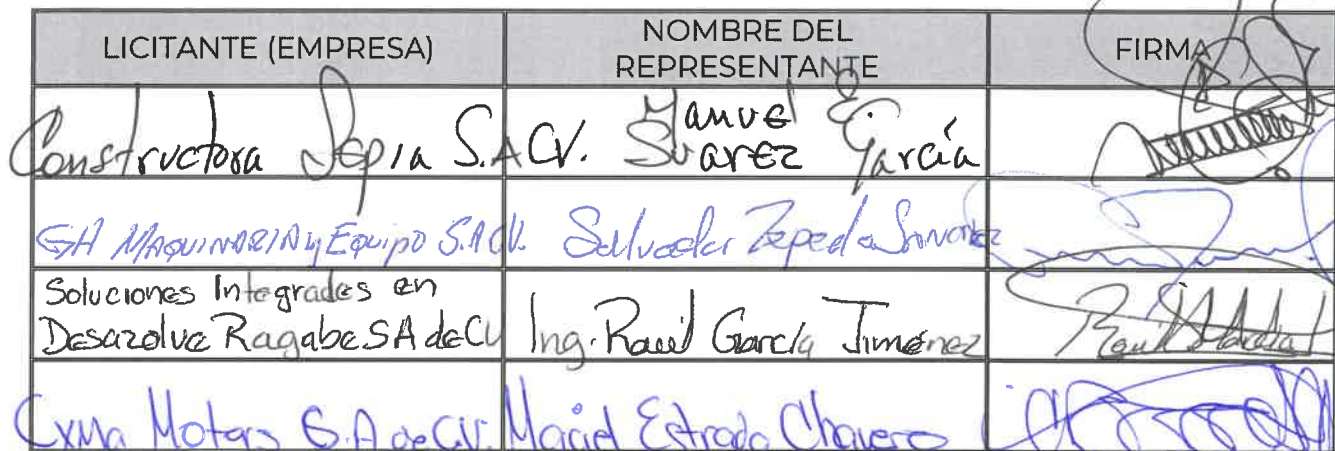 LICITANTE (EMPRESA)
NOMBRE DEL
REPRESENTANTE
FIRMA
Constructora Sepia S.A CV.
Manuel E.
Suarez García
GH MAQUINARIA y EQUIPO S.A CV.
Salvador Zepeda
Soluciones Integrades en
Desazolve Ragabe SA de CV
Ing. Raúl García Jiménez
Motors S.A de C.V.
Estrada Chavero